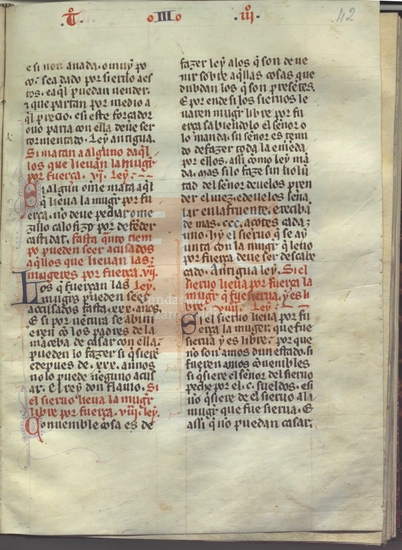 III
e si non auada. o muy po
co. sea dado por sieruo a es
tos. e aql puedan uender.
e que partan por medio a
ql precio. e si este forçador
ouo paria con ella deue ser
tormentado. Ley antigua.
Si matan a alguno daql
los que lieuan la mugr
por fuerça. vi. Ley.
Si algun ome mata aql
que lieua la mugr por fu
erça. no deue pechar ome
zillo ca lo fizo por defēder
castidat. fasta quie tiem
po pueden seer acusados
aquellos que lieuan las
mugeres por fuerça. vii.
Los q fuerçan las Ley.
mugrs pueden seer
acusados fasta. xxx. años.
E si por uentura se abini
eren con los padres de la
manceba de casar con ella.
pueden lo fazer si qsiere
e depues de. xxx. annos
no lo puede neguno acu
sar. el rey don flauio. Si
el sieruo lieua la mugr
libre por fuerça. viii. ley.
Conuenible cosa es de
fazer ley a los q son de ue
nir sobre aqllas cosas que
dubdan los q son presētes.
E por ende si los sieruos le
uaren mugr libre por fu
erça sabiendolo el señor o
lo manda. su señor es temu
do de fazer toda la emēda
por ellos. assi como ley mā
da. mas si lo faze sin uolū
tad del señor deuelos pren
der el iuez. e deuelos seña
lar en la fruente. e reciba
de mas. ccc. açotes cada
uno. Ley el sieruo q se a
iunta con la mugr q leuo
por fuerça deue ser descabe
çado. Antigua ley. Si el
sieruo lieua por fuerça la
mugr q fue sierua. e es li
bre. viiii. Ley.
Si el sieruo lieua por fu
erça la muger. que fue
sierua e es libre. por que
no son amos dun estado. si
fueren amos cōuenibles
si qsiere el señor del sieruo
peche por el. c. sueldos. e si
nō qsiere de el sieruo a la
mugr que fue sierua. E
assi q no puedan casar.